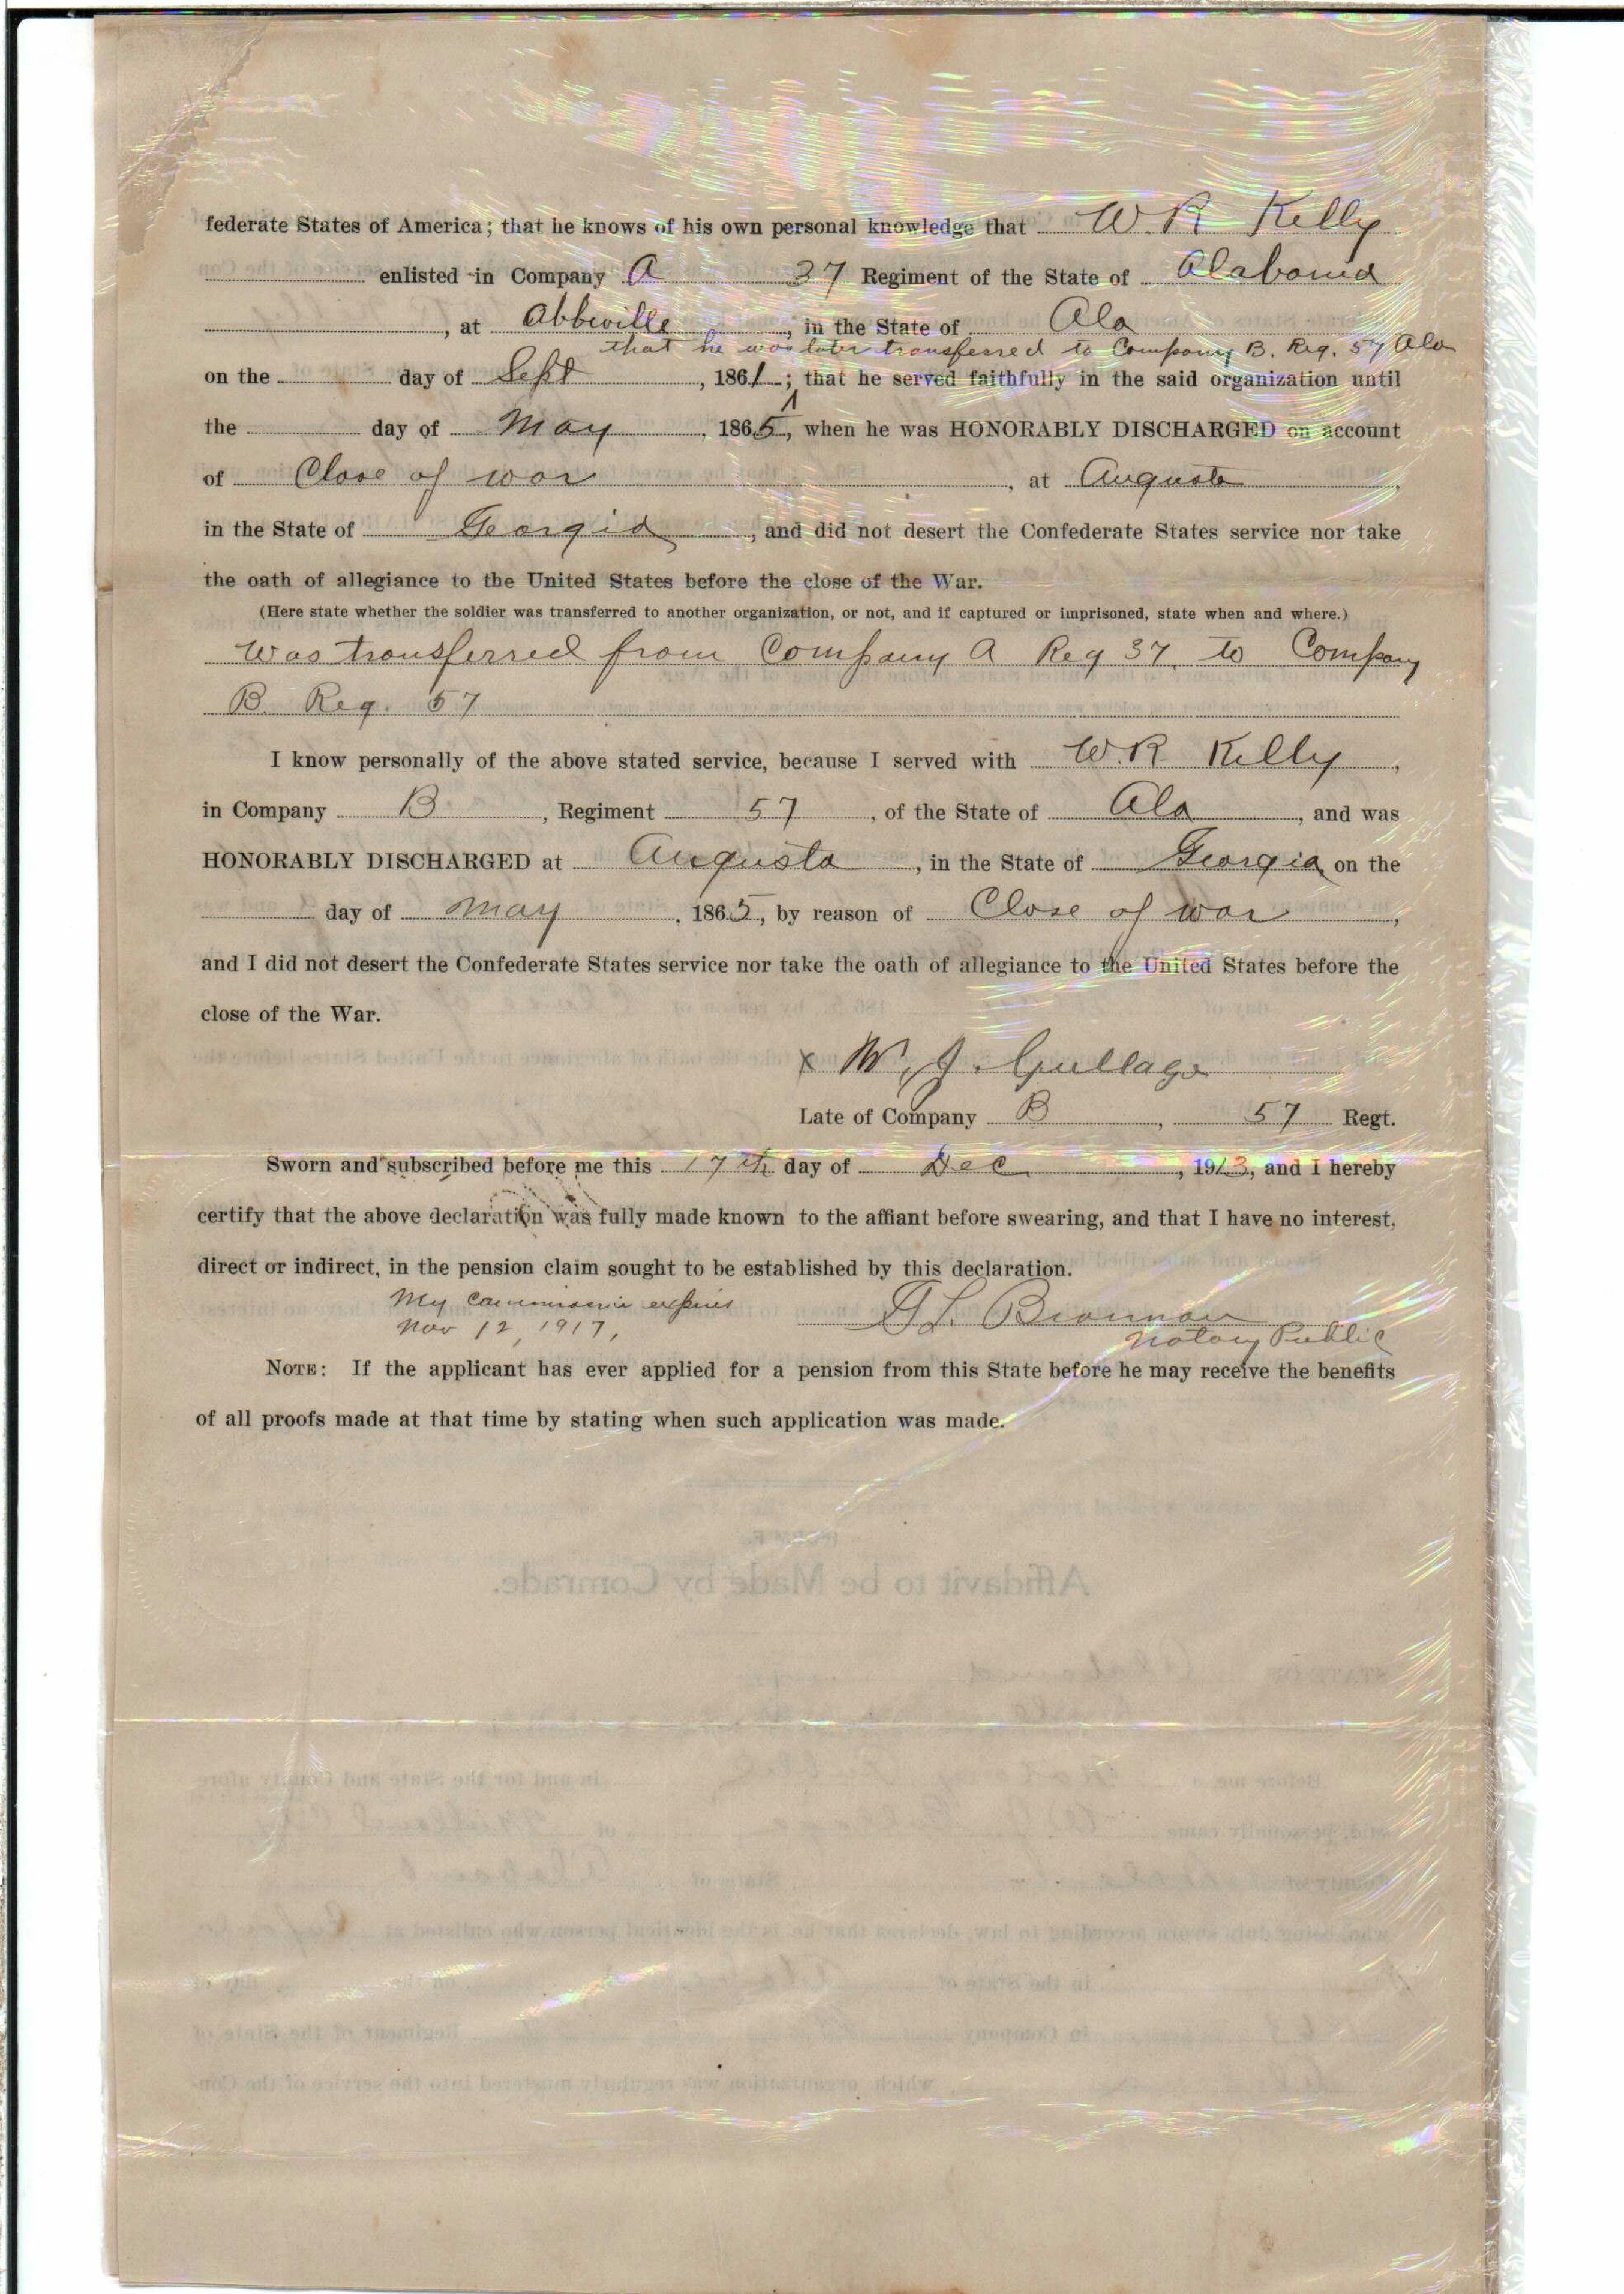 federate States of America; that he knows of his own personal knowledge that W. R Kelly
enlisted in Company A 37 Regiment of the State of Alabama
, at Abbeville, in the State of Ala
that he was later transferred to Company B. Reg. 57 Ala
on the day of Sept, 1861; that he served faithfully in the said organization until
the day of May, 1865, when he was HONORABLY DISCHARGED on account
of Close of war, at Augusta,
in the State of Georgia, and did not desert the Confederate States service nor take
the oath of allegiance to the United States before the close of the War.
(Here state whether the soldier was transferred to another organization, or not, and if captured or imprisoned, state when and where.)
Was transferred from Company A Reg 37 to Company
B. Reg. 57
I know personally of the above stated service, because I served with W. R. Kelly,
in Company B, Regiment 57, of the State of Ala, and was
HONORABLY DISCHARGED at Augusta, in the State of Georgia on the
day of May, 1865, by reason of Close of war,
and I did not desert the Confederate States service nor take the oath of allegiance to the United States before the
close of the War.
x W. J. Gulla
Late of Company B, 57 Regt.
Sworn and subscribed before me this 17th day of Dec, 1913, and I hereby
certify that the above declaration was fully made known to the affiant before swearing, and that I have no interest,
direct or indirect, in the pension claim sought to be established by this declaration.
My commission expires
Nov 12, 1917,
Notary Public
NOTE: If the applicant has ever applied for a pension from this State before he may receive the benefits
of all proofs made at that time by stating when such application was made.